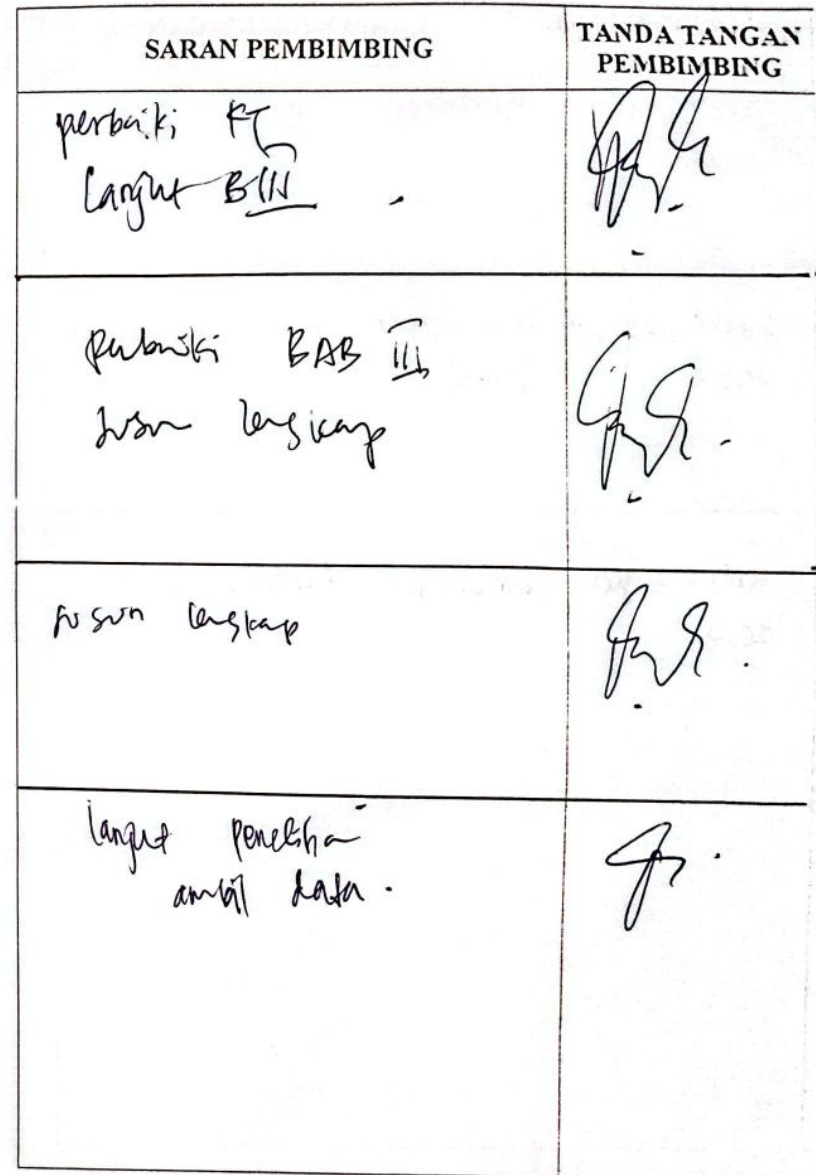 SARAN PEMBIMBING
TANDA TANGAN
PEMBIMBING
perbaiki KT
Lanjut BIII
perbaiki BAB III
susun lengkap
susun lengkap
lanjut penelitian
ambil data.